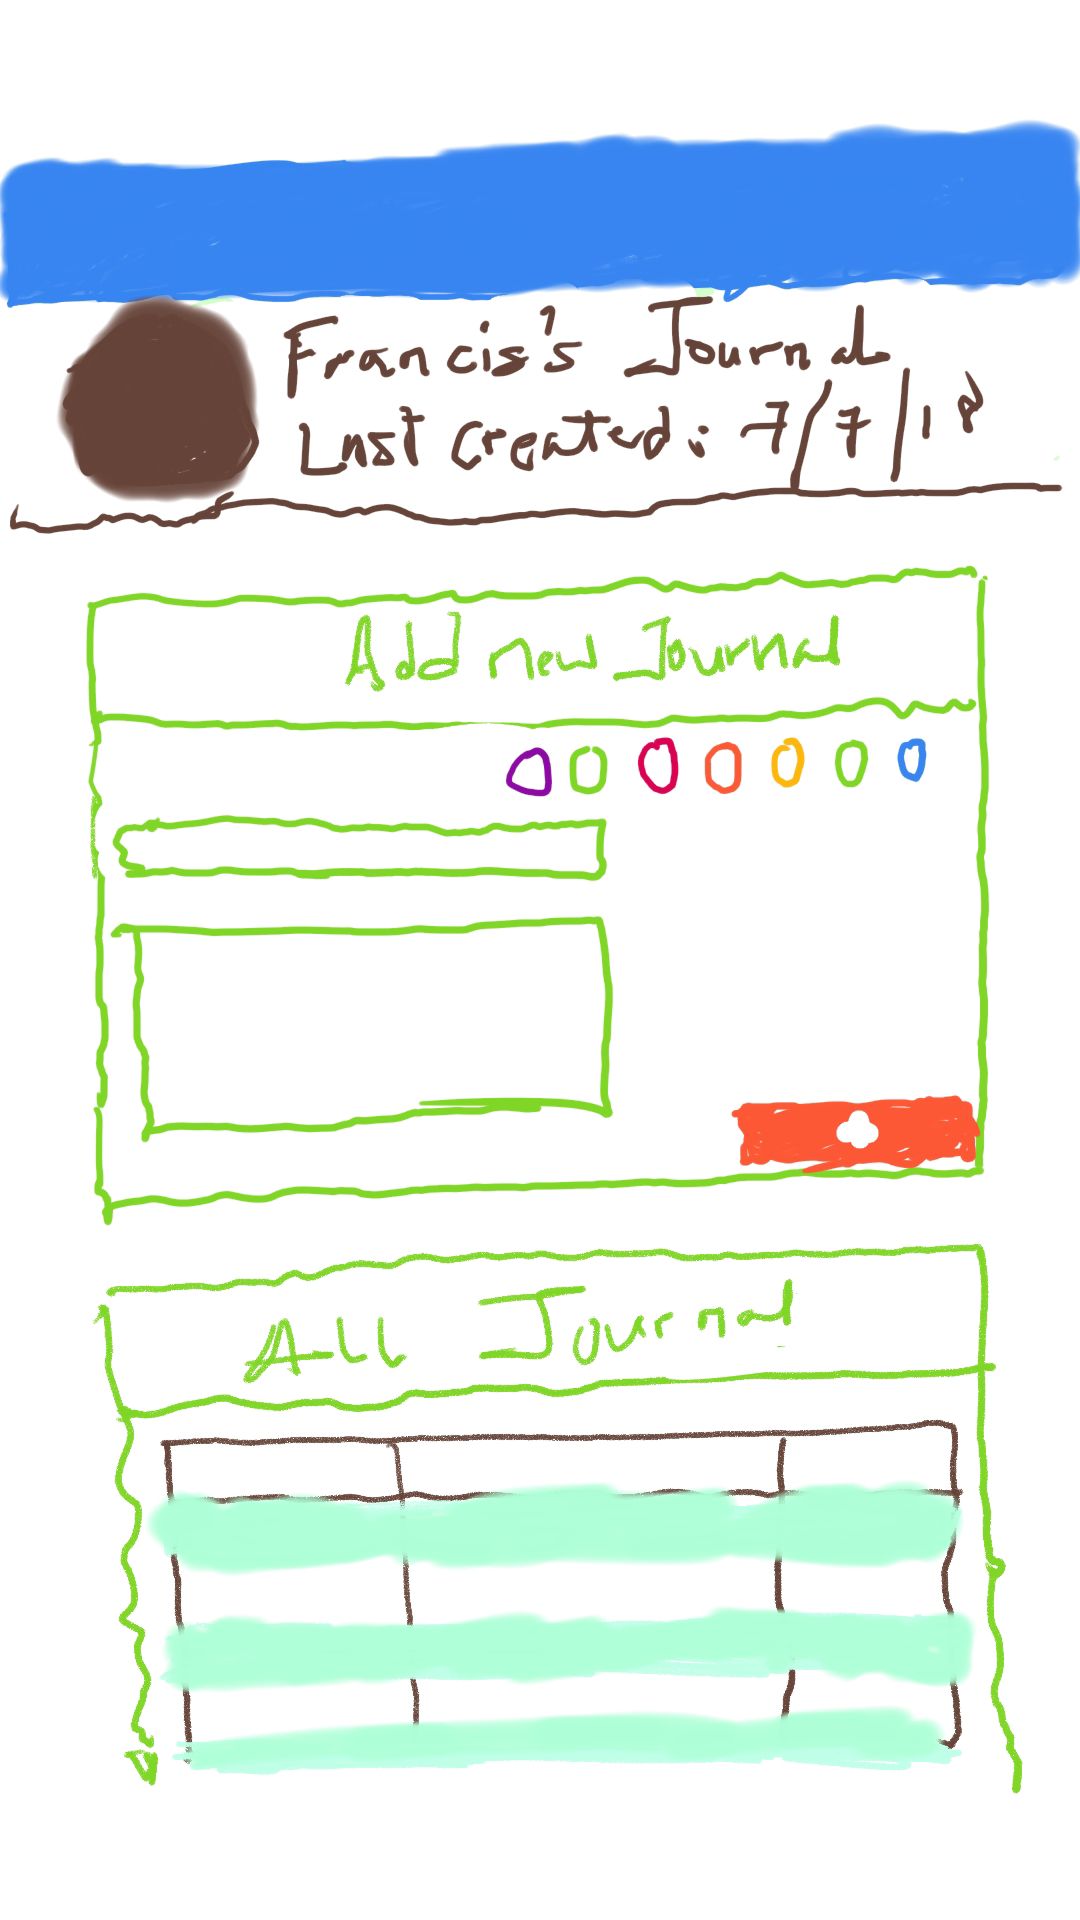 Francis's Journal
Last Created: 7/7/18
Add new Journal
All Journal